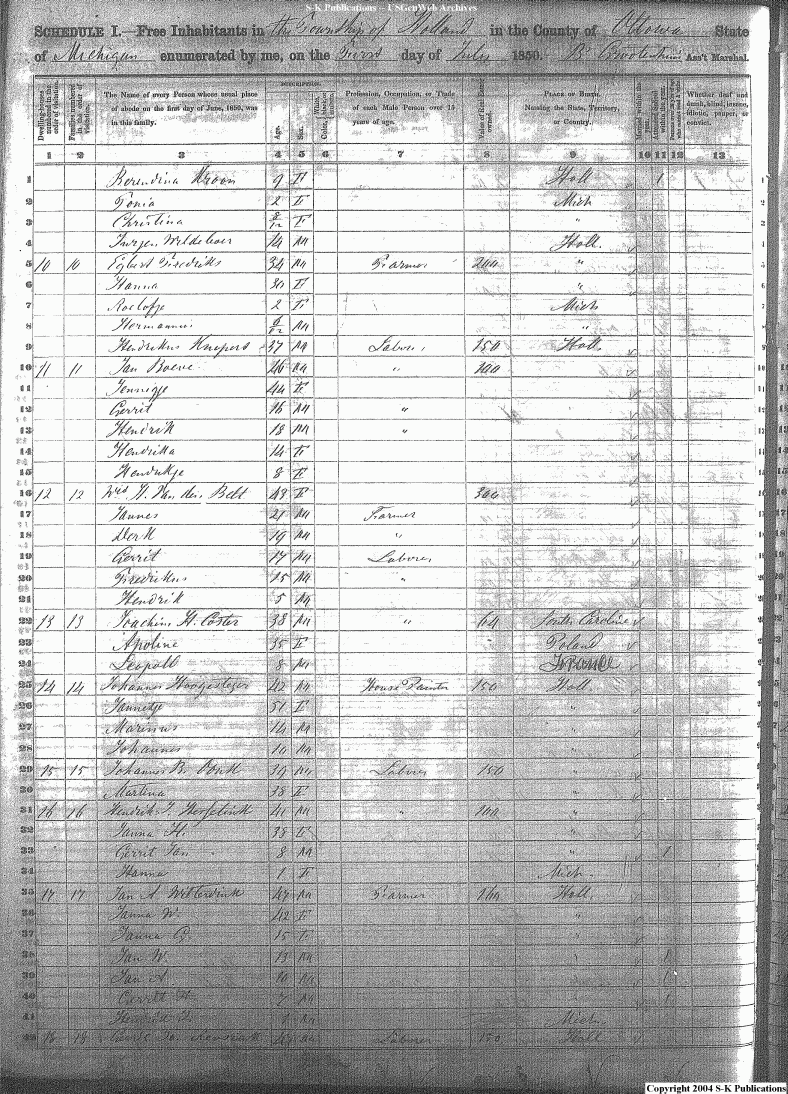 S-K Publications – USGenWeb Archives
SCHEDULE I.—Free Inhabitants in the Township of Holland in the County of Ottowa State
of Michigan enumerated by me, on the First day of 1850. Ass't Marshal.
Dwelling-houses numbered in the order of visitation. Families numbered in the order of visitation. The Name of every Person whose usual place of abode on the first day of June, 1850, was in this family. DESCRIPTION. Age. Sex. White, Color black, or mulatto. Profession, Occupation, or Trade of each Male Person over 15 years of age. Value of Real Estate owned. PLACE OF BIRTH. Naming the State, Territory, or Country. Married within the year. Attended School within the year. Whether deaf and dumb, blind, insane, idiotic, pauper, or convict.
1 2 3 4 5 6 7 8 9 10 11 12 13
1 Berendina Kroon 9 F Holl. 1 1
2 Gonia 2 F Mich 2
3 Christina F " 3
4 Wildeboer 14 M Holl. 4
5 10 10 Egbert Fredriks 34 M Farmer 200 " 5
6 Hanna 30 F " 6
7 Roelofje 2 F Mich 7
8 Hermannus M " 8
9 Hendrikus Kuepers 37 M Labore 150 Holl. 9
10 11 11 Jan Boeve 46 M " 100 10
11 Jennigje 44 F 11
12 Gerrit 16 M " 12
13 Hendrik 18 M " 13
14 Hendrika 14 F 14
15 Hendrikje 8 F 15
16 12 12 Wid H. Van den Belt 43 F 300
17 Jannes 21 M Farmer
18 Derk 19 M "
19 Gerrit 17 M Laborer
20 Fredrikus 15 M "
21 Hendrik 5 M
22 13 13 Joachim H. Coster 38 M " 64 South Caroline
23 Apoline 35 F " Poland
24 Leopold 8 M France
25 14 14 Johannes Hoogesteger 42 M House Painter 150 Holl.
26 Jannetje 51 F "
27 Marinus 14 M "
28 Johannes 10 M "
29 15 15 Johannes B. 39 M Laborer 150 "
30 Martina 38 F "
31 16 16 Hendrik 41 M " 100 "
32 Janna H. 38 F "
33 Gerrit Jan 8 M " 1
34 Hanna 1 F Mich.
35 17 17 Jan A Witterdink 47 M Farmer 160 Holl.
36 Janna W. 42 F "
37 Janna G. 15 F "
38 Jan W. 13 M " 1
39 Jan A 10 M " 1
40 Gerrit H 7 M " 1
41 1 M Mich.
42 18 18 M Laborer 150 Holl
Copyright 2004 S-K Publications